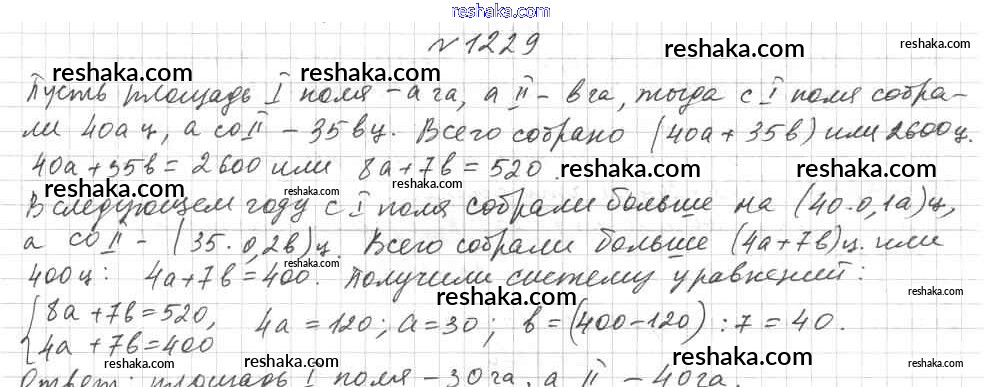 reshaka.com
№1229 reshaka.com
reshaka.com reshaka.com reshaka.com
Пусть площадь I поля - a га, а II - в га, тогда с I поля собра-
ли 40а ц, а со II - 35в ц. Всего собрано (40а + 35в) или 2600 ц.
40а + 35в = 2600 или 8а + 7в = 520. reshaka.com reshaka.com
reshaka.com reshaka.com
В следующем году с I поля собрали больше на (40·0,1а) ц,
а со II - (35·0,2в) ц. Всего собрали больше (4а+7в) ц. или
reshaka.com reshaka.com
400 ц: 4а+7в = 400. Получили систему уравнений:
reshaka.com reshaka.com
8а + 7в = 520, 4а = 120; а = 30; в = (400-120) : 7 = 40.
4а + 7в = 400
reshaka.com reshaka.com reshaka.com reshaka.com
Ответ: площадь I поля - 30 га, а II - 40 га.